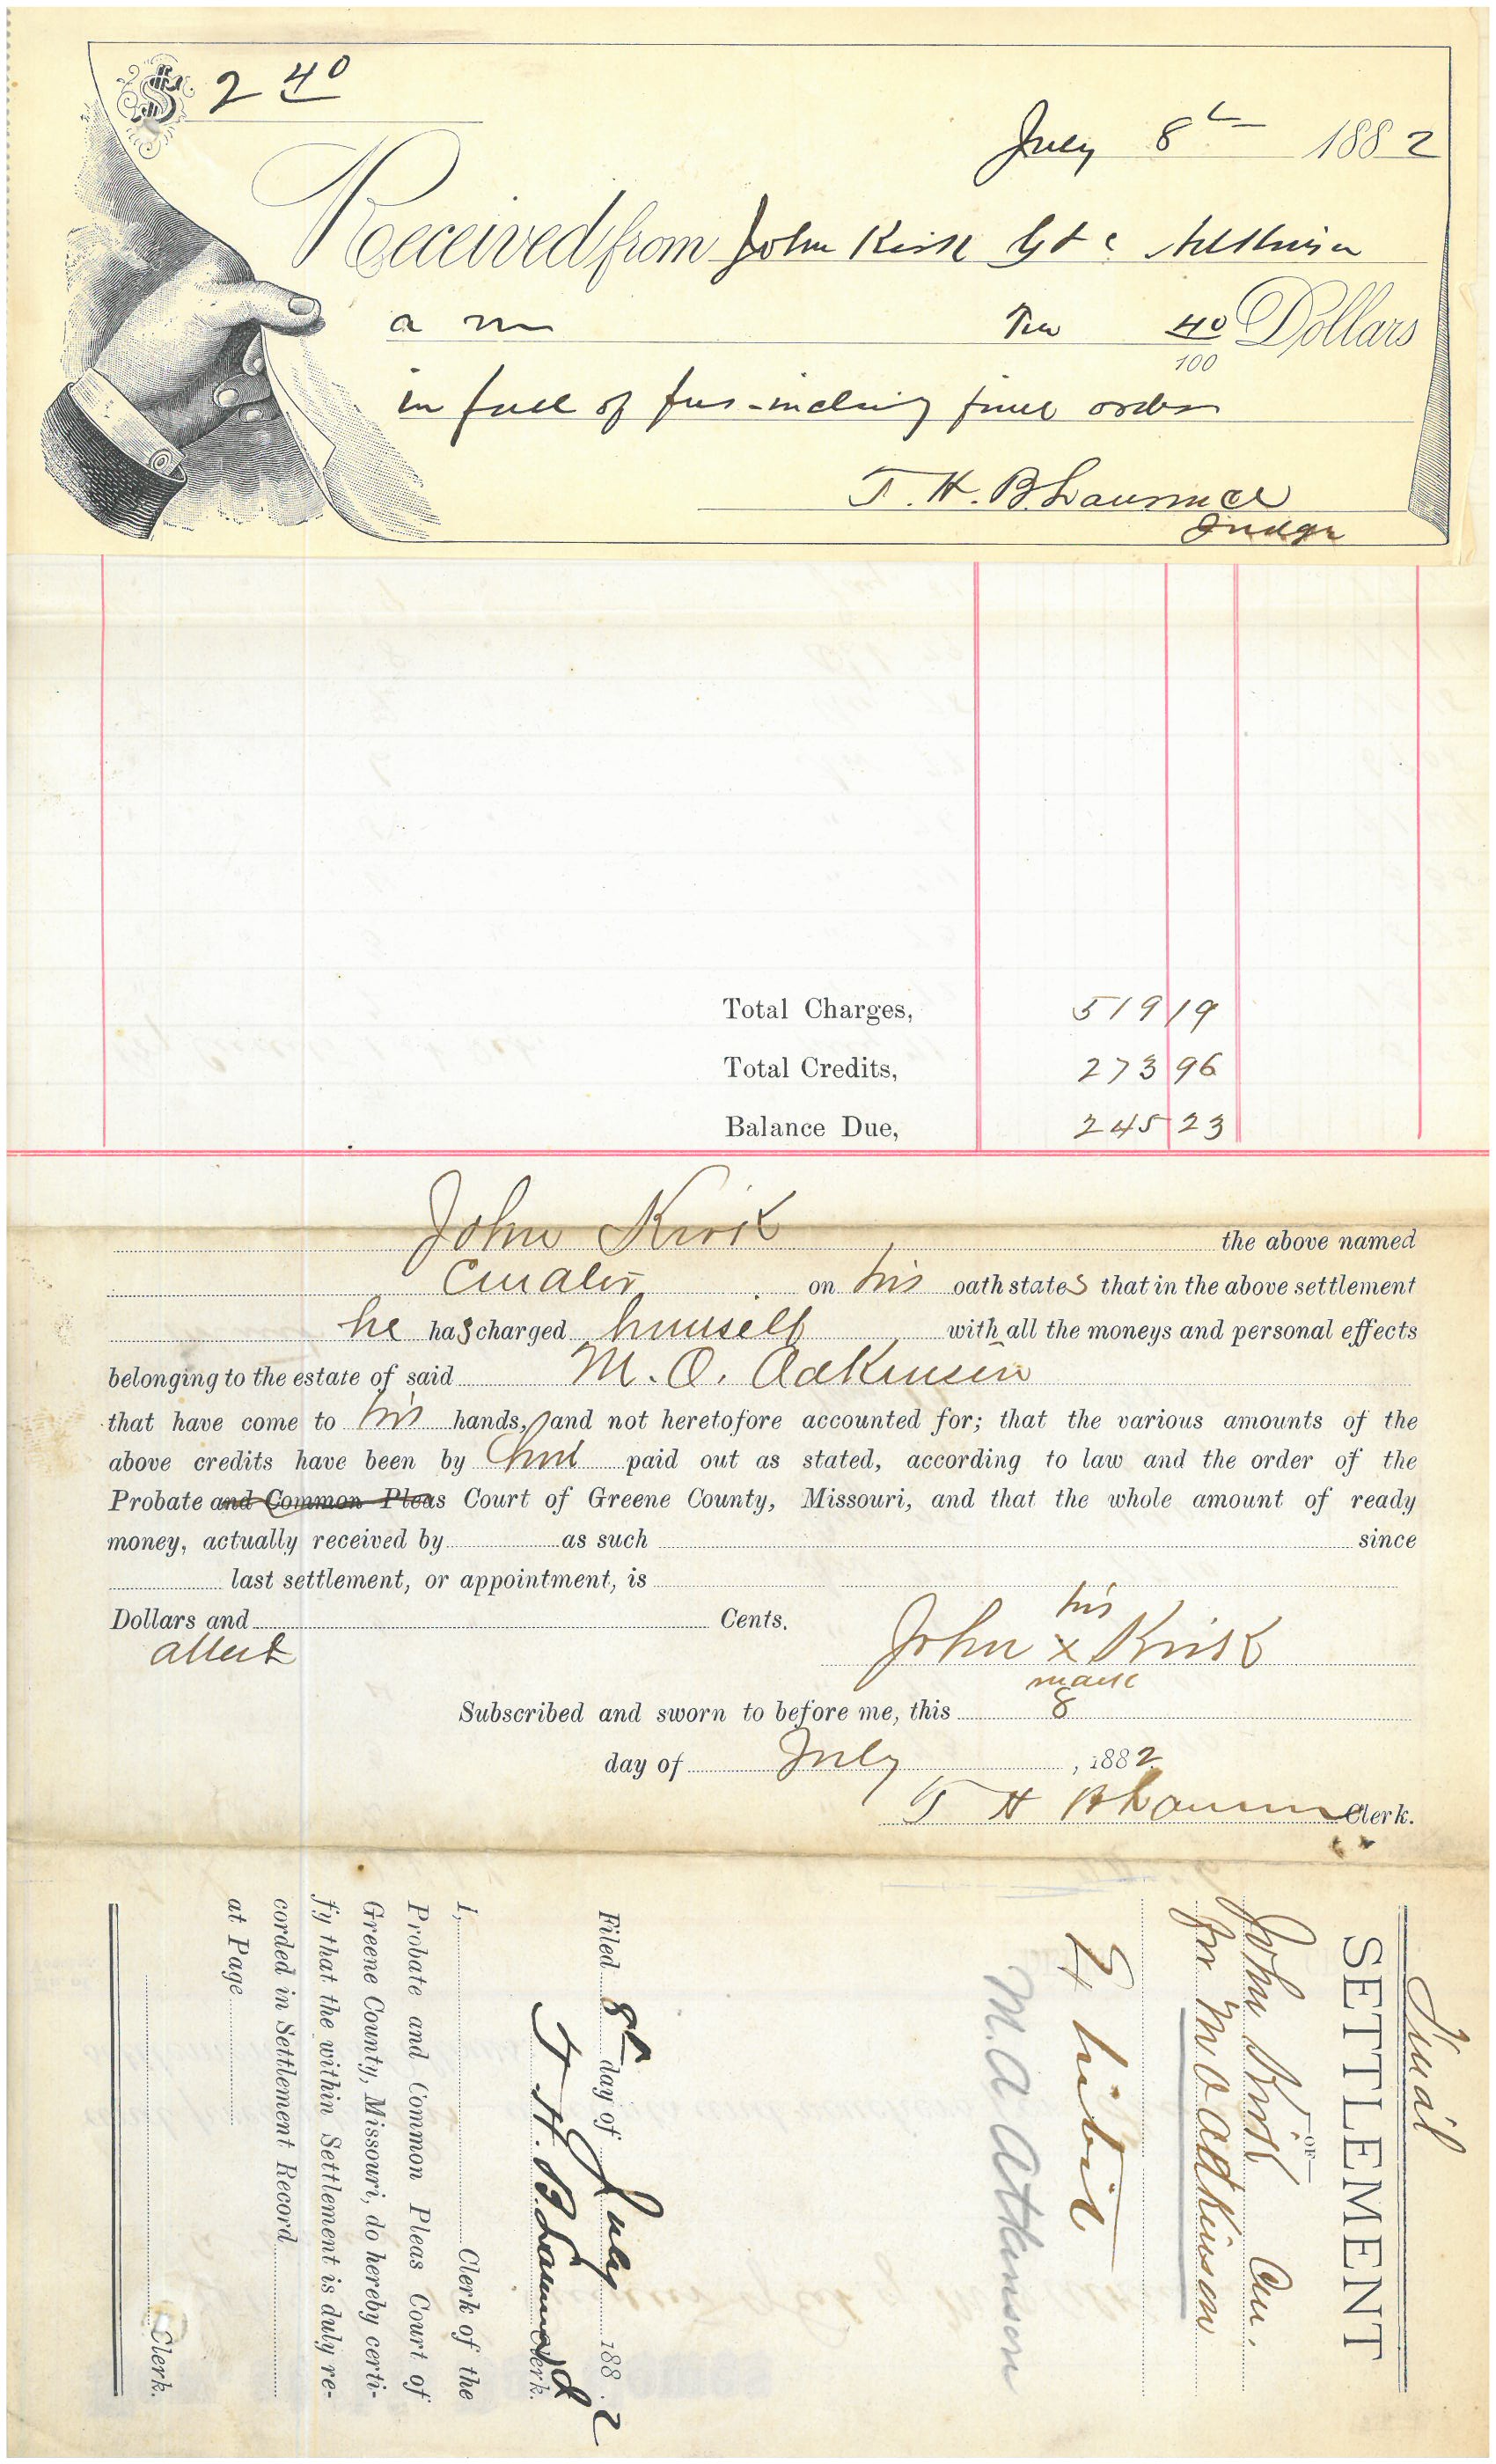 $ 2 40
July 8th 1882
Received from John Kirk Gd &c Atkinson
a m Two 40/100 Dollars
in full of fees - includ'g final order
T. H. B. Lawrence
Judge
Total Charges, 519 19
Total Credits, 273 96
Balance Due, 245 23
John Kirk the above named
Curator on his oath states that in the above settlement
he has charged himself with all the moneys and personal effects
belonging to the estate of said M. O. Adkinson
that have come to his hands, and not heretofore accounted for; that the various amounts of the
above credits have been by him paid out as stated, according to law and the order of the
Probate and Common Pleas Court of Greene County, Missouri, and that the whole amount of ready
money, actually received by as such since
last settlement, or appointment, is
Dollars and Cents.
attest
his
John x Kirk
mark
Subscribed and sworn to before me, this 8
day of July, 1882
T H B Lawrence Clerk.
Final
SETTLEMENT
—OF—
John Kirk Cur.
for M O Adkinson
M. A Atkinson
Filed 8th day of July 1882
T. H. B. Lawrence Clerk.
I, Clerk of the
Probate and Common Pleas Court of
Greene County, Missouri, do hereby certi-
fy that the within Settlement is duly re-
corded in Settlement Record
at Page
Clerk.